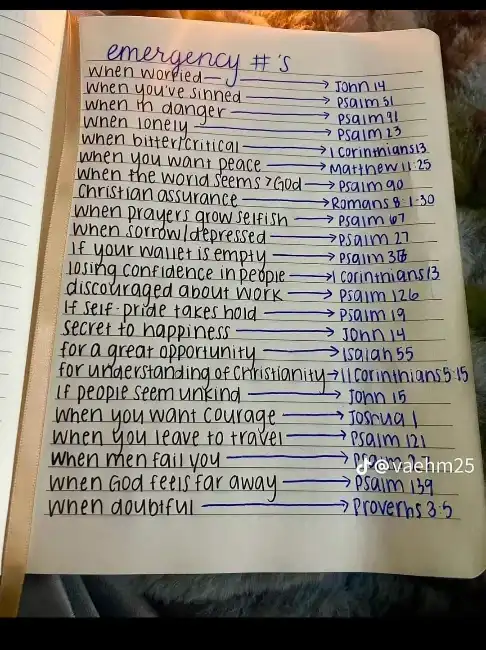 emergency #'s
When worried → John 14
When you've sinned → Psalm 51
when in danger → Psalm 91
when lonely → Psalm 23
when bitter/critical → 1 Corinthians 13
when you want peace → Matthew 11:25
when the world seems > God → Psalm 90
Christian assurance → Romans 8:1-30
when prayers grow selfish → Psalm 67
when sorrow/depressed → Psalm 27
If your wallet is empty → Psalm
losing confidence in people → 1 Corinthians 13
discouraged about work → Psalm 126
If self-pride takes hold → Psalm 19
secret to happiness → John 14
for a great opportunity → Isaiah 55
for understanding of Christianity → 11 Corinthians 5:15
If people seem unkind → John 15
when you want courage → Joshua 1
when you leave to travel → Psalm 121
when men fail you → Psalm
@vaehm25
when God feels far away → Psalm 139
when doubtful → Proverbs 3:5